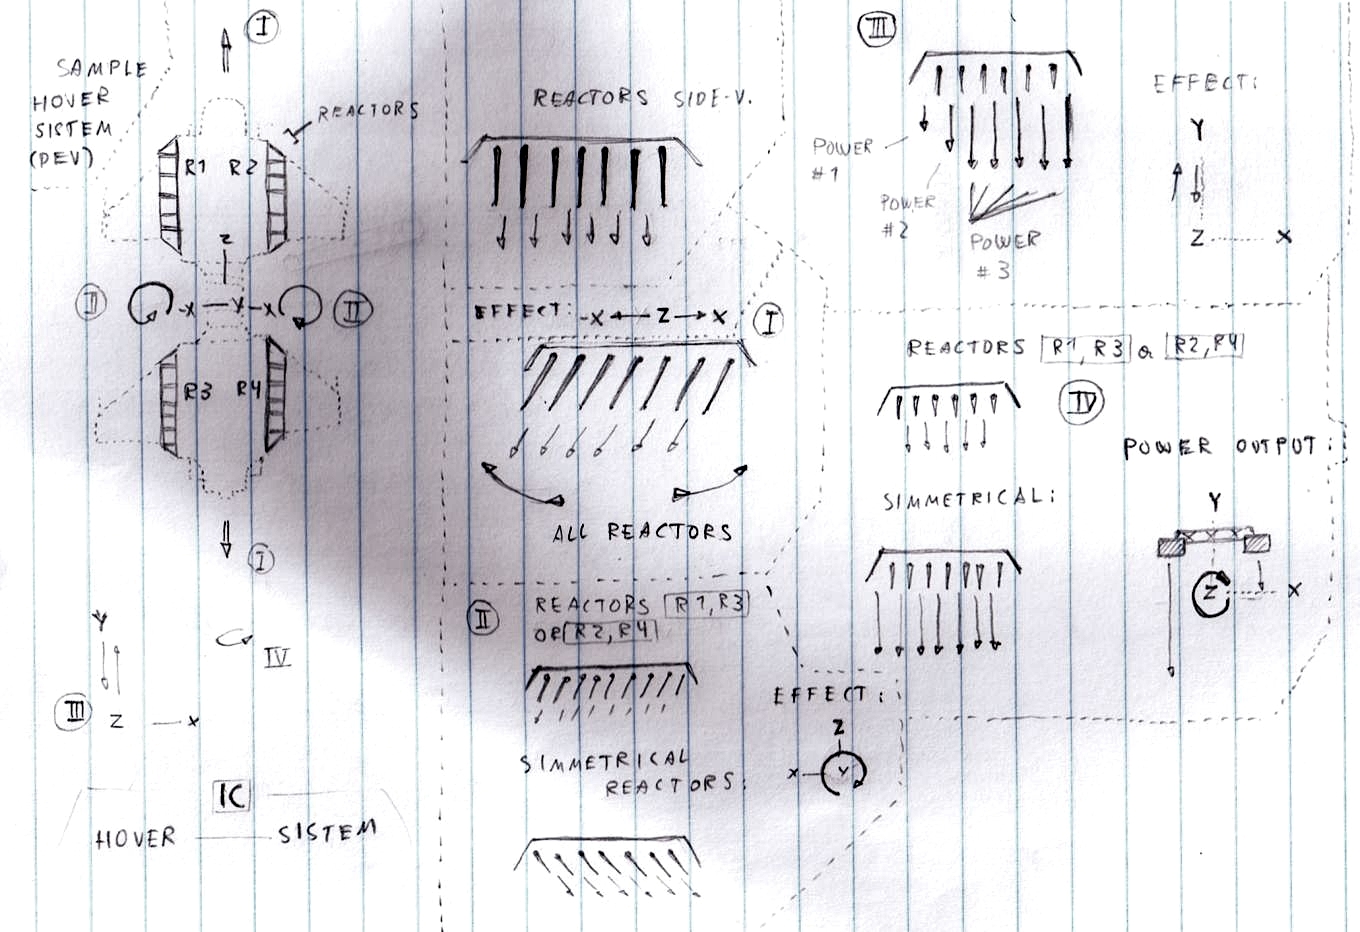 I
SAMPLE
HOVER
SISTEM
(PEV)
REACTORS
R1 R2
Z
II -X Y -X II
R3 R4
I
Y
IV
III Z X
IC
HOVER SISTEM
REACTORS SIDE-V.
EFFECT: -X Z X I
ALL REACTORS
II REACTORS R1, R3
OR R2, R4
SIMMETRICAL
REACTORS:
EFFECT:
Z
X Y
III
POWER
#1
POWER
#2
POWER
#3
EFFECT:
Y
Z X
REACTORS R1, R3 OR R2, R4
IV
SIMMETRICAL:
POWER OUTPUT:
Y
Z X